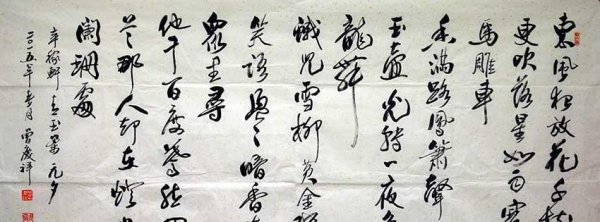 東風夜放花千樹
更吹落星如雨寶
馬雕車
香滿路鳳簫聲
玉壺光轉一夜魚
龍舞
蛾兒雪柳黃金縷
笑語盈々暗香去
眾里尋
他千百度驀然回
首那人却在燈火
闌珊處
辛稼軒 青玉案 元夕
二〇一五年春月 曹慶祥